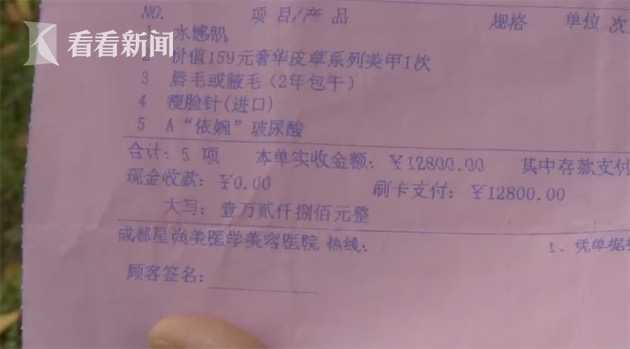 NO. 项目/产品 规格 单位 次
K 看看新闻
1 水嫩肌
2 价值159元奢华皮草系列美甲1次
3 唇毛或腋毛(2年包干)
4 瘦脸针(进口)
5 A“依婉”玻尿酸
合计: 5 项 本单实收金额: ￥12800.00 其中存款支付
现金收款: ￥0.00 刷卡支付: ￥12800.00
大写: 壹万贰仟捌佰元整
成都星尚美医学美容医院 热线: 1、凭单据
顾客签名: